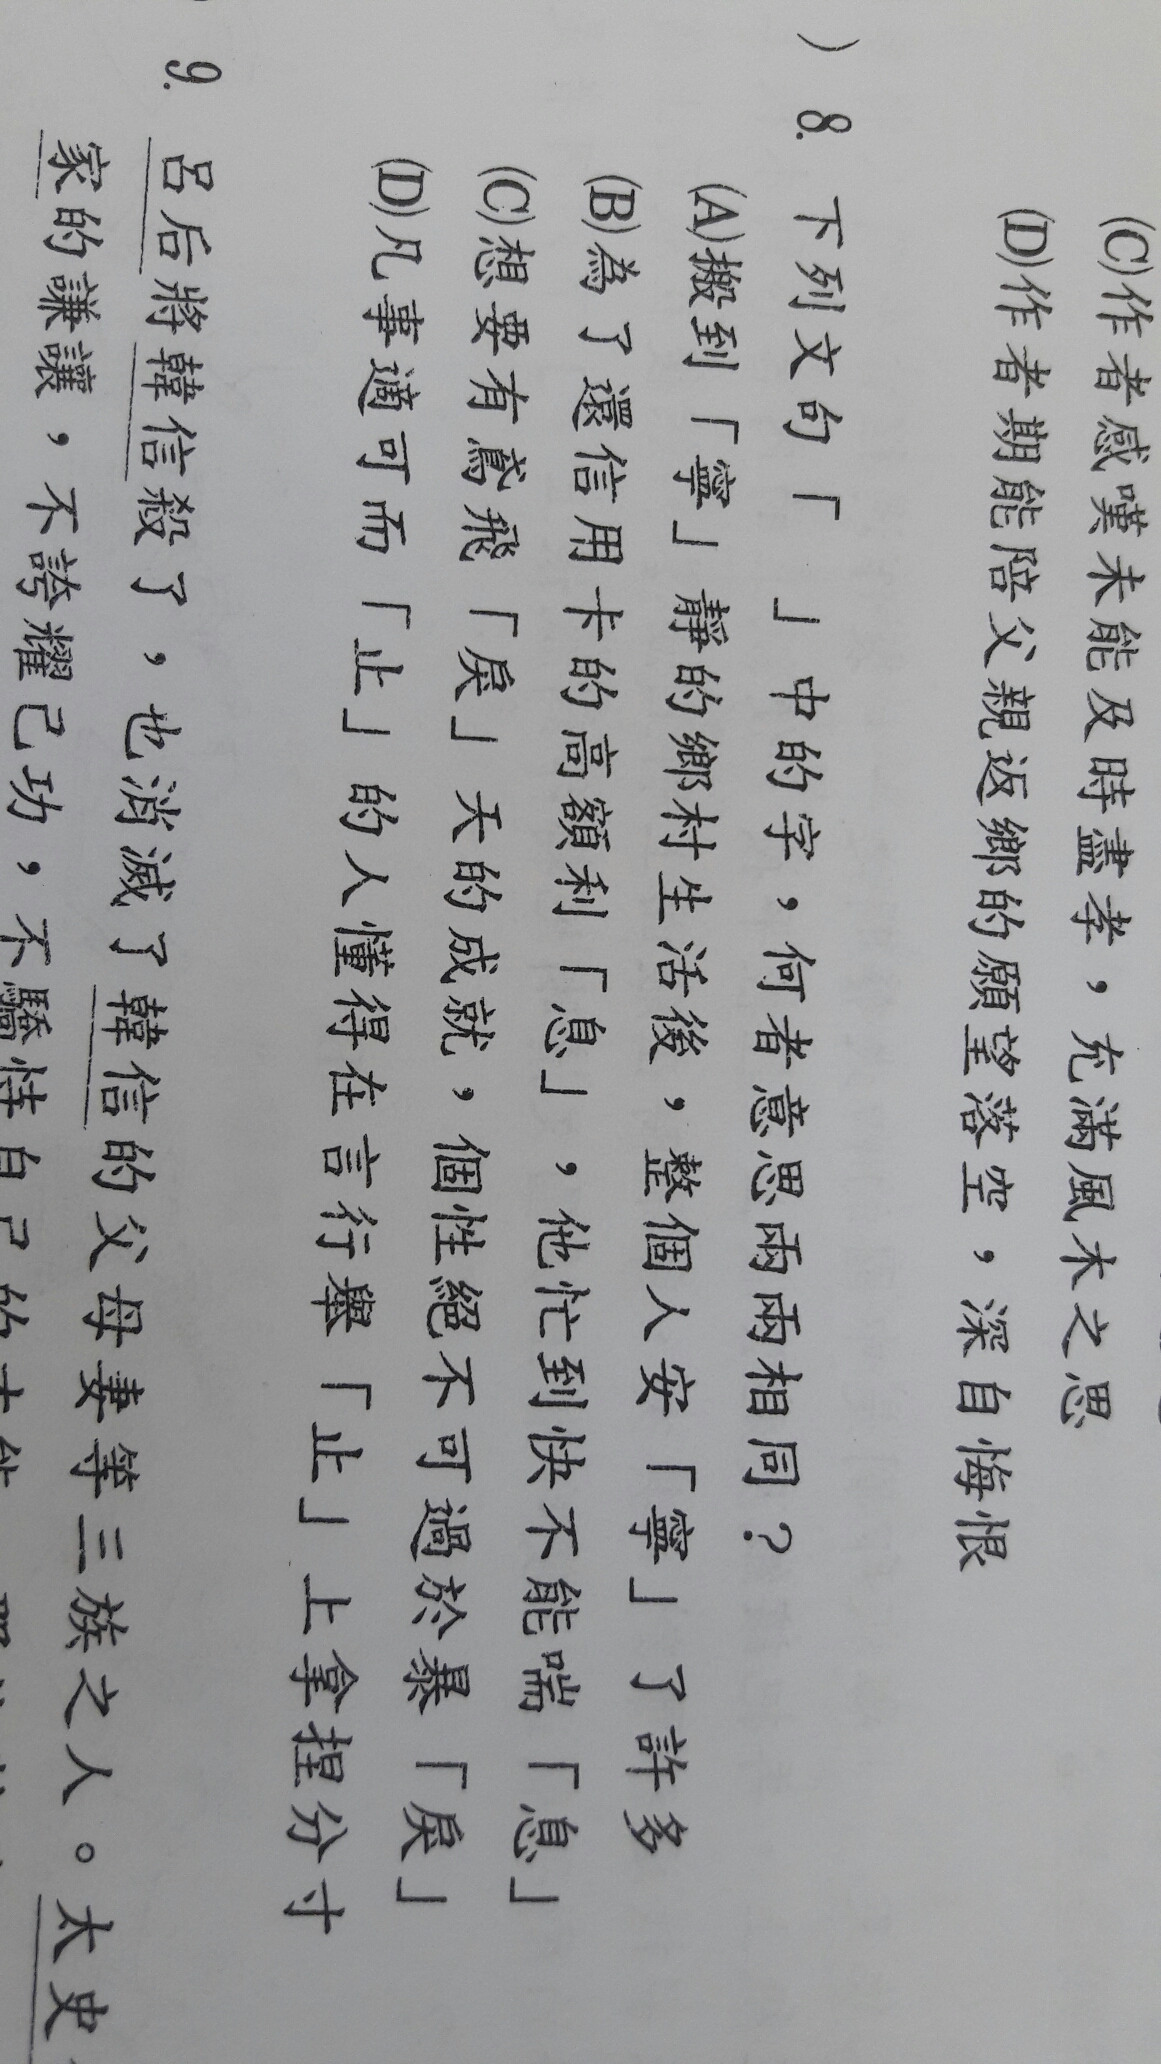 (C)作者感嘆未能及時盡孝，充滿風木之思
(D)作者期能陪父親返鄉的願望落空，深自悔恨
）8. 下列文句「　」中的字，何者意思兩兩相同？
(A)搬到「寧」靜的鄉村生活後，整個人安「寧」了許多
(B)為了還信用卡的高額利「息」，他忙到快不能喘「息」
(C)想要有鳶飛「戾」天的成就，個性絕不可過於暴「戾」
(D)凡事適可而「止」的人懂得在言行舉「止」上拿捏分寸
9. 呂后將韓信殺了，也消滅了韓信的父母妻等三族之人。太史
家的謙讓，不誇耀己功，不驕恃自己的才能